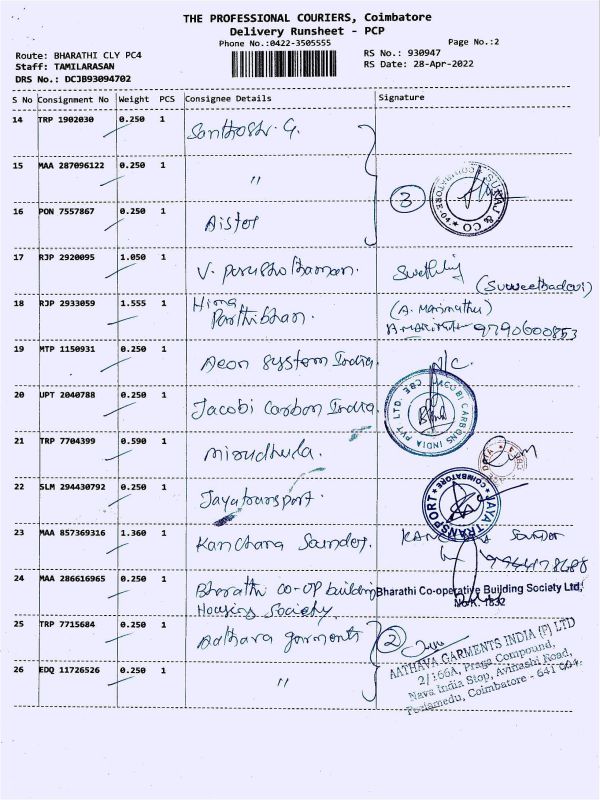 THE PROFESSIONAL COURIERS, Coimbatore
Delivery Runsheet - PCP
Phone No.:0422-3505555
Page No.:2
Route: BHARATHI CLY PC4
RS No.: 930947
Staff: TAMILARASAN
RS Date: 28-Apr-2022
DRS No.: DCJB93094702
S No Consignment No Weight PCS Consignee Details Signature
14 TRP 1902030 0.250 1 Santhosh. G.
15 MAA 287096122 0.250 1 "
3
SURAJ & CO COIMBATORE-04.
16 PON 7557867 0.250 1 Aister
17 RJP 2920095 1.050 1 V. Purushothaman.
(Suweethadevi)
18 RJP 2933059 1.555 1 Hima Parthiban. (A. Marimuthu)
A. MARIMUTHU 9790600853
19 MTP 1150931 0.250 1 Aeon System India.
20 UPT 2040788 0.250 1 Jacobi Carbon India.
JACOBI CARBONS INDIA PVT LTD. CBE
21 TRP 7704399 0.590 1 Mirudhula.
22 SLM 294430792 0.250 1 Jayatransport.
JAYA TRANSPORT COIMBATORE
23 MAA 857369316 1.360 1 Kanchana Sounder.
24 MAA 286616965 0.250 1 Bharathi Co-op building
Housing Society
Bharathi Co-operative Building Society Ltd,
No/K. 1832
25 TRP 7715684 0.250 1 Aathava garments
2
AATHAVA GARMENTS INDIA (P) LTD
2/166A, Praga Compound,
Nava India Stop, Avinashi Road,
Peelamedu, Coimbatore - 641 004.
26 EDQ 11726526 0.250 1 "